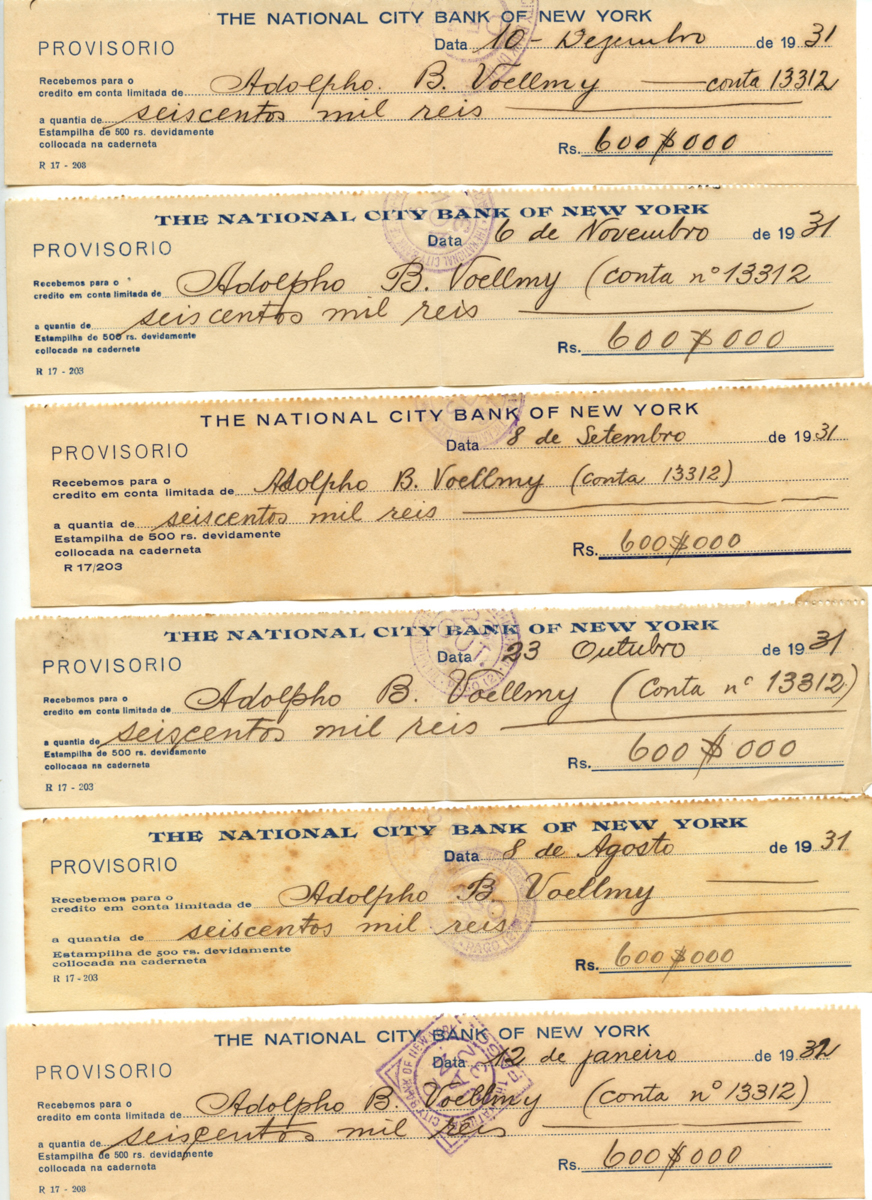 THE NATIONAL CITY BANK OF NEW YORK
PROVISORIO
Data 10 - Dezembro de 1931
Recebemos para o
credito em conta limitada de Adolpho. B. Voellmy — conta 13312
a quantia de seiscentos mil reis
Estampilha de 500 rs. devidamente
collocada na caderneta
Rs. 600$000
R 17 - 203
THE NATIONAL CITY BANK OF NEW YORK
PROVISORIO
Data 6 de Novembro de 1931
Recebemos para o
credito em conta limitada de Adolpho B. Voellmy (conta nº 13312
a quantia de seiscentos mil reis
Estampilha de 500 rs. devidamente
collocada na caderneta
Rs. 600$000
R 17 - 203
THE NATIONAL CITY BANK OF NEW YORK
PROVISORIO
Data 8 de Setembro de 1931
Recebemos para o
credito em conta limitada de Adolpho B. Voellmy (conta 13312)
a quantia de seiscentos mil reis
Estampilha de 500 rs. devidamente
collocada na caderneta
Rs. 600$000
R 17/203
THE NATIONAL CITY BANK OF NEW YORK
PROVISORIO
Data 23 Outubro de 1931
Recebemos para o
credito em conta limitada de Adolpho B. Voellmy (Conta nº 13312)
a quantia de seiscentos mil reis
Estampilha de 500 rs. devidamente
collocada na caderneta
Rs. 600$000
R 17 - 203
THE NATIONAL CITY BANK OF NEW YORK
PROVISORIO
Data 8 de Agosto de 1931
Recebemos para o
credito em conta limitada de Adolpho B. Voellmy
a quantia de seiscentos mil reis
Estampilha de 500 rs. devidamente
collocada na caderneta
Rs. 600$000
R 17-203
THE NATIONAL CITY BANK OF NEW YORK
PROVISORIO
Data 12 de janeiro de 1932
Recebemos para o
credito em conta limitada de Adolpho B. Voellmy (conta nº 13312)
a quantia de seiscentos mil reis
Estampilha de 500 rs. devidamente
collocada na caderneta
Rs. 600$000
R 17 - 203